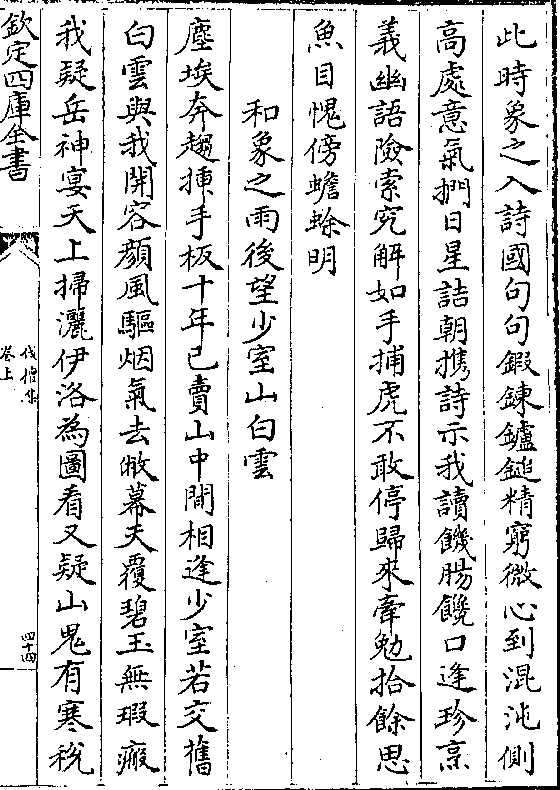 此時象之入詩國句句鍛鍊鑪鎚精窮微心到混沌側
高處意氣捫日星詰朝携詩示我讀饑腸饞口逢珍烹
義幽語險索究解如手捕虎不敢停歸來牽勉拾餘思
魚目愧傍蟾蜍明
和象之雨後望少室山白雲
塵埃奔趨揀手板十年已賣山中間相逢少室若交舊
白雲與我開容顔風驅烟氣去敝幕天覆碧玉無瑕瘢
我疑岳神宴天上掃灑伊洛為圖看又疑山鬼有寒稅
欽定四庫全書
伐檀集
卷上
四十四